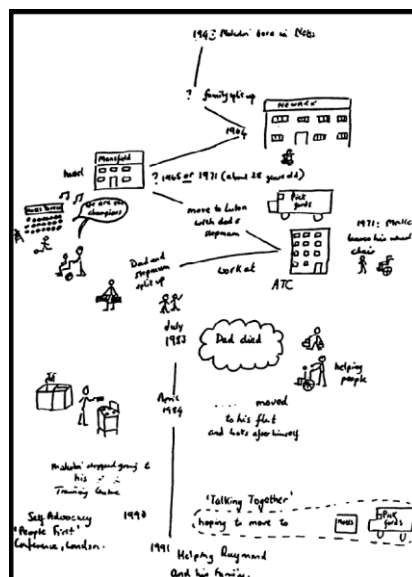 1943 Malcolm born in Notts
? family split up
Newark
1964
Mansfield
hostel
? 1965 or 1971 (about 28 years old)
We are the
champions
Pick
fords
move to Luton
with dad &
stepmum
1971:
leaves his wheel
chair
Dad and
stepmum
split up
work at
ATC
July
1983
Dad died
helping
people
April
1984
moved
to his flat
and looks after himself
Malcolm stopped going to
his
Training Centre
'Talking Together'
Self Advocacy
1990
'People First'
Conference, London.
hoping to move to
Notts
Pick
fords
1991
Helping Raymond
and his Family.